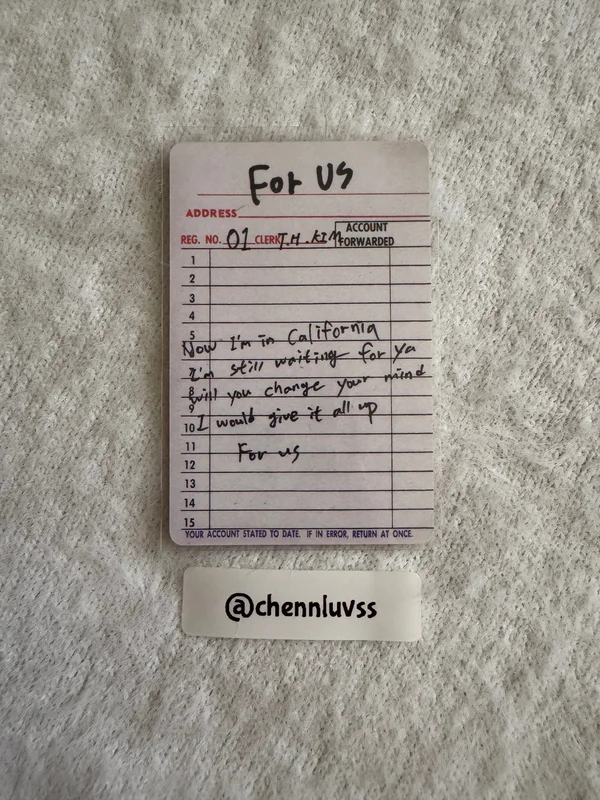 For US
ADDRESS
REG. NO. 01 CLERK T.H.KIM ACCOUNT FORWARDED
1
2
3
4
5
Now I'm in California
I'm still waiting for ya
8
Will you change your mind
9
10 I would give it all up
11
For us
12
13
14
15
YOUR ACCOUNT STATED TO DATE. IF IN ERROR, RETURN AT ONCE.
@chenniuvss